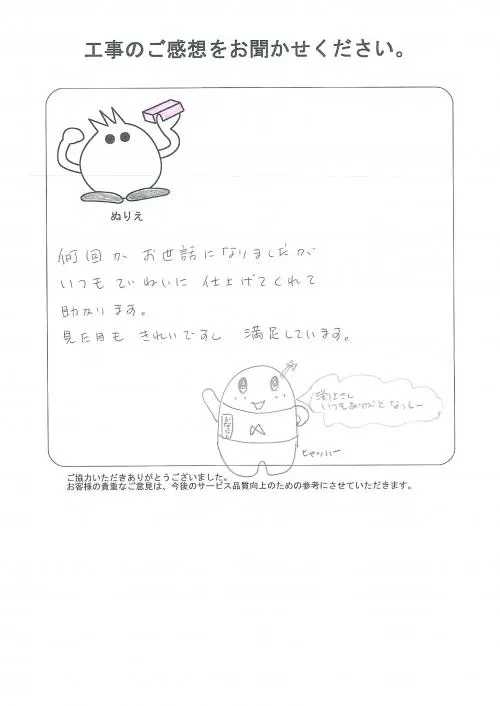 工事のご感想をお聞かせください。
ぬりえ
何回か お世話になりましたが
いつも ていねいに 仕上げてくれて
助かります。
見た目も きれいですし 満足しています。
いつもありがとなっしー
ヒャッハー
ご協力いただきありがとうございました。
お客様の貴重なご意見は、今後のサービス品質向上のための参考にさせていただきます。